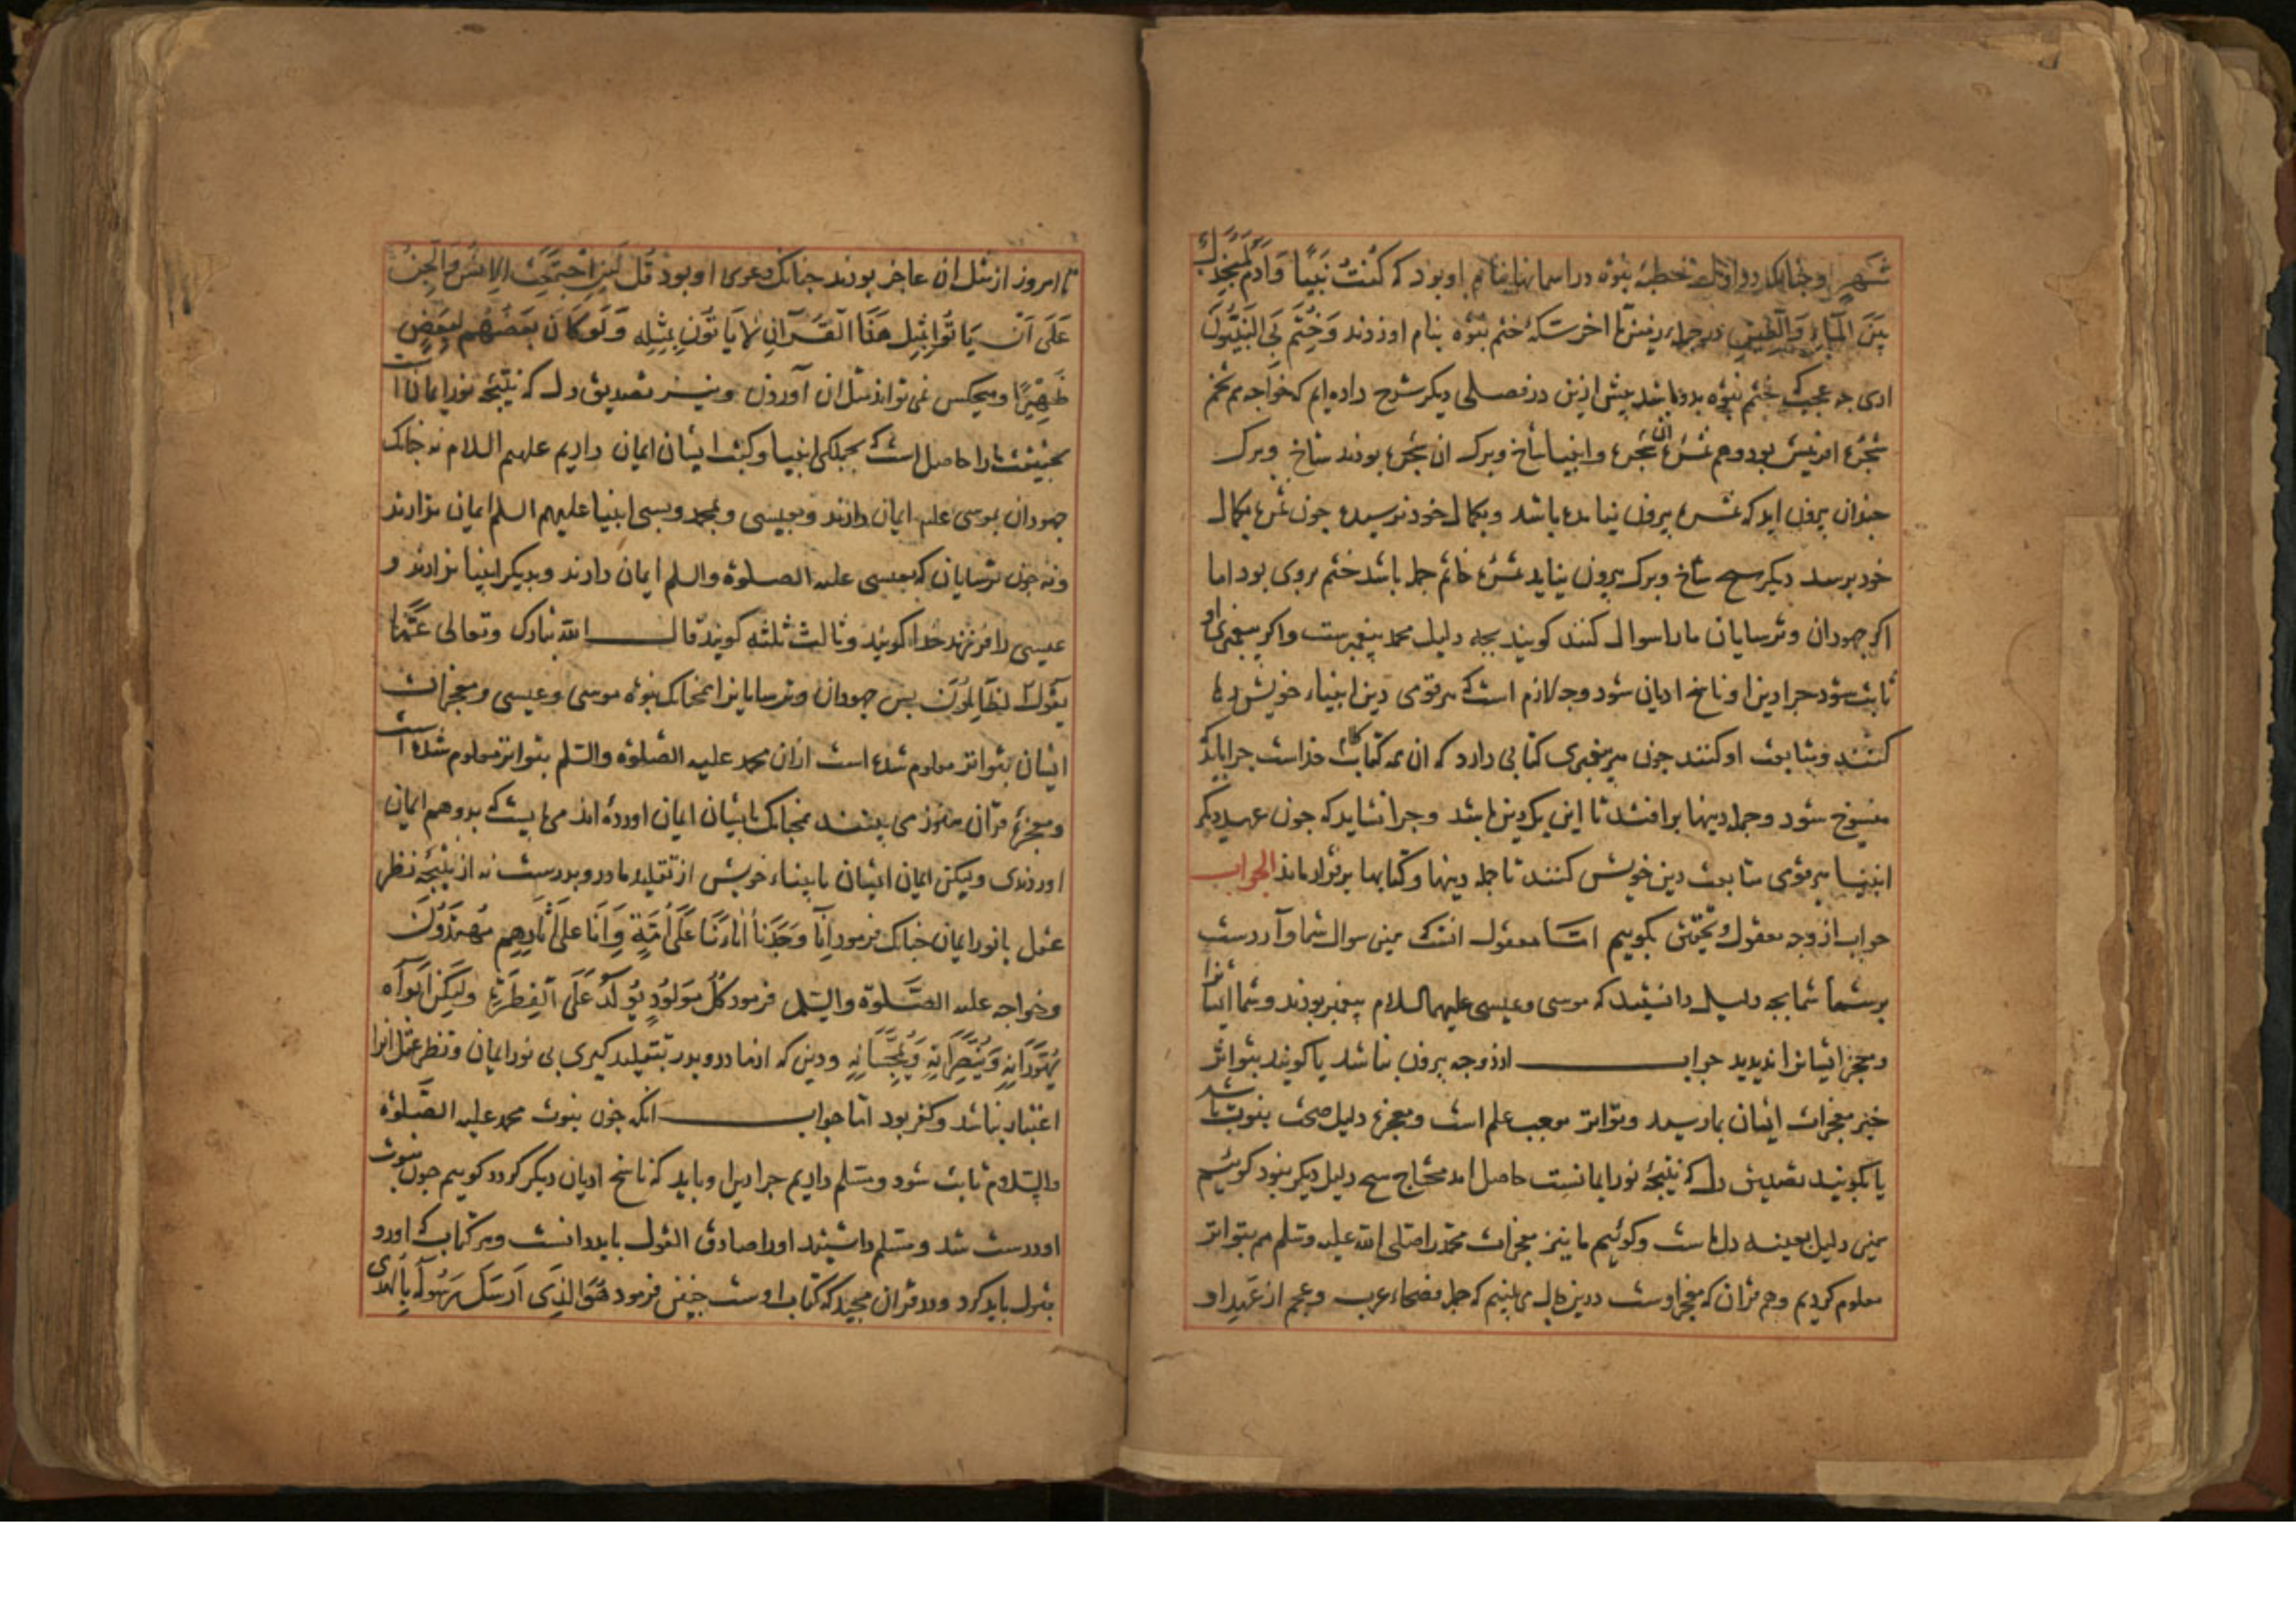 شَهرٍ وجنانک در اول خطبهٔ نبوّه در آسمانها بنام او بود که کُنتُ نَبِیًّا وَآدَم لَمُنجَدِلٌ
بَینَ المآءِ وَالطین در آخر سکهٔ ختم نبوّه بنام او زدند وَخُتِمَ بِیَ النَبِیُّونَ
ای چه عجبکه ختم نبوّه بدو باشد بیش ازین در فصلی دیکر شرح داده ایم که خواجه هم تخم
شجرهٔ افرینش بود وهم ثمرهٔ ان شجره وانبیا شاخ وبرک ان شجره بودند شاخ وبرک
جندان برون اید که ثمره بیرون نیامده باشد وبکمال خود نرسیده جون ثمره بکمال
خود برسد دیکر هیچ شاخ وبرک بیرون نیاید ثمره خاتم جمله باشد ختم بروی بود اما
اکر جهودان وترسایان مارا سوال کنند کویند بجه دلیل محمد بیغمبرست واکر بیغمبری او
ثابت شود جرا دین او ناسخ ادیان شود وجه لازم است که هر قومی دین انبیاء خویش رها
کنند ومتابعت او کنند جون هر بیغمبری کتابی دارد که ان همه کتاب خداست جرا باید که
منسوخ شود وجمله دینها برافتد تا این یک دین باشد وجرا نشاید که جون عهد دیکر
انبیا هر قومی متابعت دین خویش کنند تا جمله دینها وکتابها برقرار ماند الجواب
جواب از وجه معقول وتحقیق بکوییم اما معقول انست که همین سوال شما وآردست
بر شما شما بجه دلیل دانستید که موسی وعیسی علیهما السلام بیغمبر بودند وشما ایشانرا
ومعجز ایشانرا ندیدید جواب از دو وجه بیرون نباشد یا کویند بتواتر
خبر معجزات ایشان بما رسید وتواتر موجب علم است ومعجزه دلیل صحت نبوت باشد
یا بکویند تصدیق دل که نتیجهٔ نور ایمانست حاصل امد محتاج هیچ دلیل دیکر نبود کوئیم
همین دلیل بعینه دل ماست وکوئیم ما نیز معجزات محمدرا صلی الله علیه وسلم هم بتواتر
معلوم کردیم وهم قرآن که معجز اوست درین حال می بینیم که جمله فصحاء عرب وعجم از عَهدِ او
تا امروز از مثل ان عاجز بودند جنانک دعوی او بود قُل لَئِنِ اجتَمَعَتِ الاِنسُ وَالجِنُّ
عَلَی اَنْ یَاتُوا بِمِثِلِ هَذَا القُرآنِ لا یَاتُونَ بِمِثلِه وَلَو کَانَ بَعضُهُم لِبَعضٍ
ظَهِیْرًا وهیچکس نمی تواند مثل ان آوردن ونیز تصدیق دل که نتیجه نور ایمان است
بحقیقت مارا حاصل است که بجملکی انبیا وکتب ایشان ایمان داریم علیهم السلام نه جنانک
جهودان بموسی علیه ایمان دارند وبعیسی وبمحمد وبسی انبیا علیهم السلم ایمان ندارند
ونه جون ترسایان که بعیسی علیه الصلوة والسلم ایمان دارند وبدیکر انبیا ندارند و
عیسی را فرزند خدا کویند وثالث ثلثه کویند قال الله تبارک وتعالی عَمَّا
یَقُولُ الظّالِمُونَ بس جهودان وترسایانرا همجنانک نبوّه موسی وعیسی ومعجزات
ایشان بتواتر معلوم شده است ازان محمد علیه الصلوة والسلم بتواتر معلوم شده است
ومعجزهٔ قرآن هنوز می بینند همجنانک بایشان ایمان اورده اند می بایست که بدو هم ایمان
اوردندی ولیکن ایمان ایشان بانبیاء خویش از تقلید مادر وبدرست نه از نتیجهٔ نظر
عقل بانور ایمان جنانک فرمود اِنَّا وَجَدْنَا آبَاءَنَا عَلَی اُمَّةٍ وَاِنَّا عَلَی آثَارِهِم مُهتَدُونَ
وخواجه علیه الصَّلوة والسلم فرمود کُلُّ مَولُودٍ یُولَدُ عَلَی الفِطرَةِ وَلَیکِن اَبَوَاه
یُهَوِّدَانِهِ وَیُنَصِّرَانِهِ وَیُمَجِّسَانِهِ ودین که از مادر وبدر بتقلید کیری بی نور ایمان ونظر عقل انرا
اعتبار نباشد وکفر بود اما جواب انکه جون نبوت محمد علیه الصّلوة
والسّلام ثابت شود ومسلم داریم جرا دین او باید که ناسخ ادیان دیکر کردد کوییم جون نبوت
او درست شد ومسلم داشتید اورا صادق القول باید دانست وهر کتاب که اورد
قبول باید کرد ودر قرآن مجید که کتاب اوست جنین فرمود هُوَ الذِی اَرسَلَ رَسُولَهُ بِالهُدَی